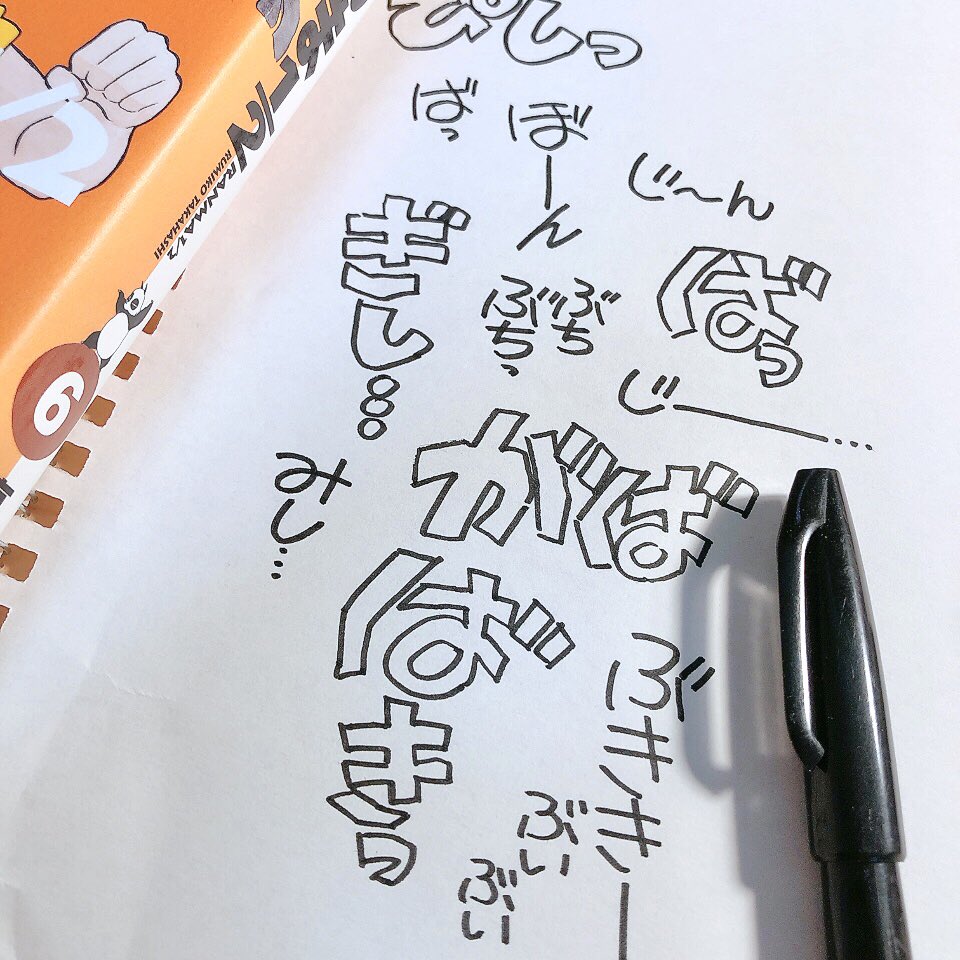 RANMA1/2
RUMIKO TAKAHASHI
6
ぴしっ
ばっ
ぼーん
じ〜ん
ぎし…
ぶち
ぶちっ
ばっ
じ——…
がば
みし…
ばきっ
ぶききー
ぶい
ぶい